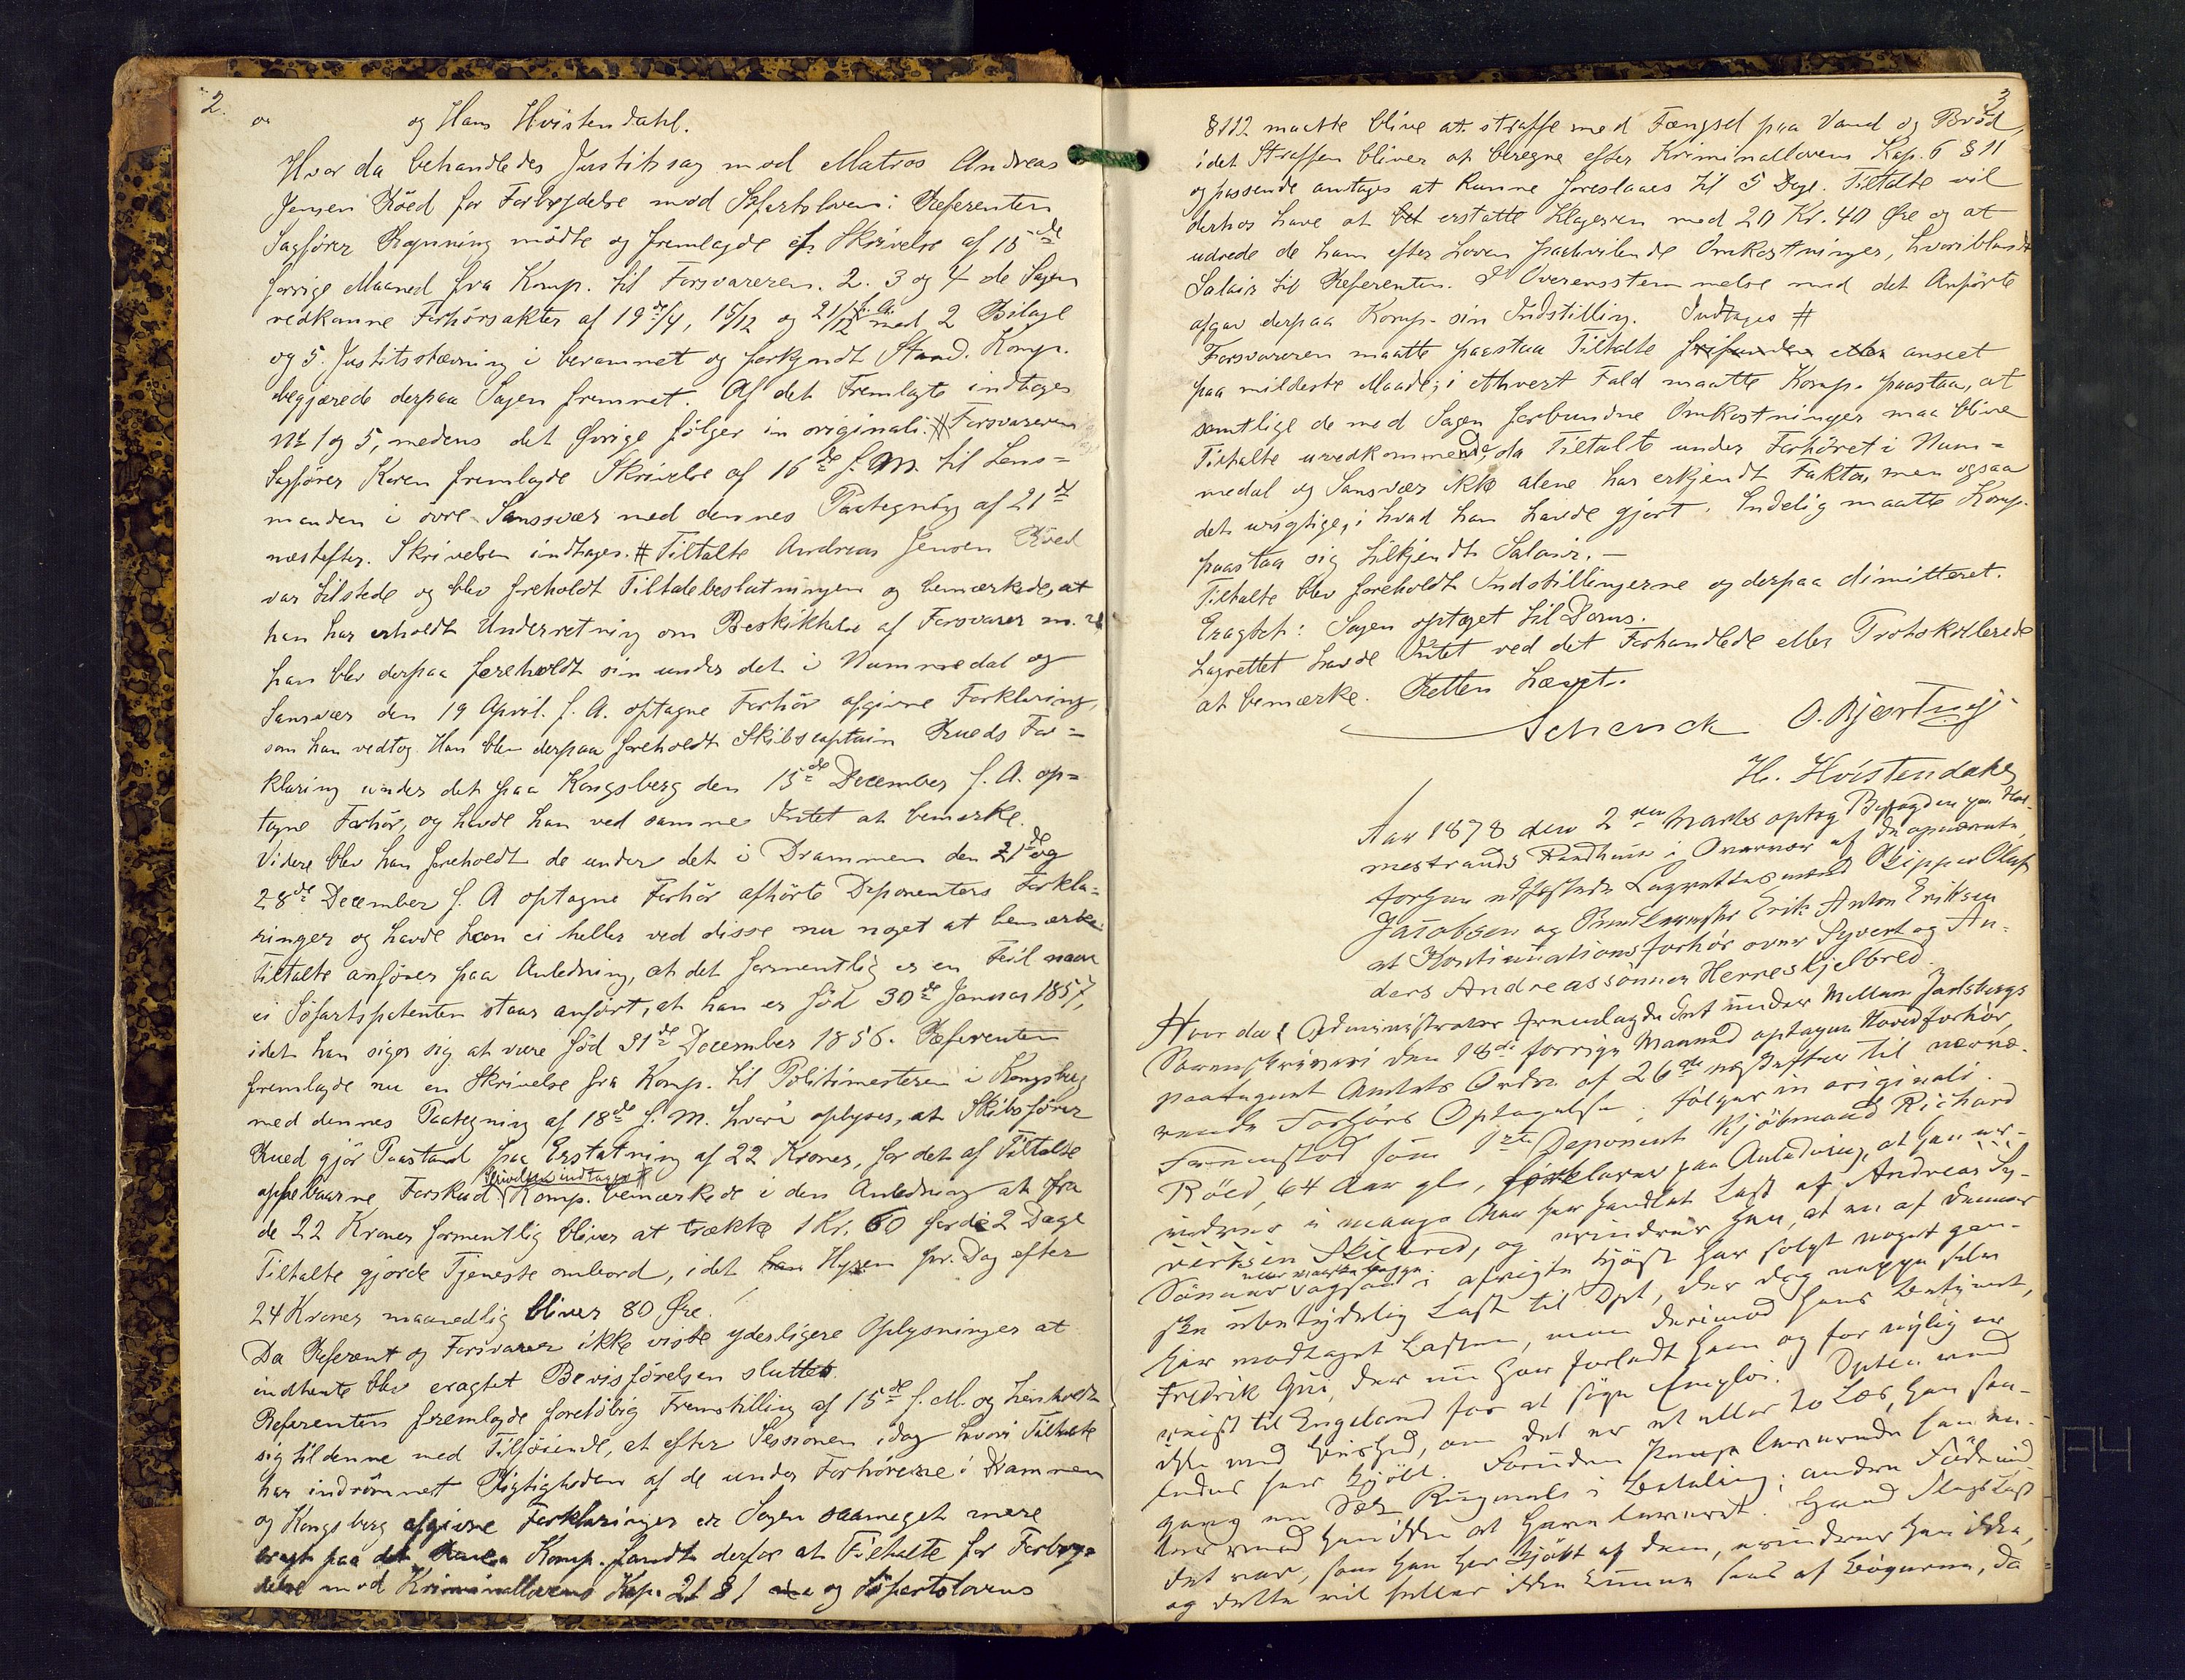 2.
og Hans Hvistendahl.
Hvor da behandledes Justitssag mod Matros Andreas
Jensen Röed for Forbrydelse mod Söfartsloven: Referenten
Sagförer Rynning mödte og fremlagde 1. Skrivelse af 15de
forrige Maaned fra Komp. til Forsvareren. 2. 3 og 4 de Sagen
vedkomne Forhörsakter af 19de/4, 15/12 og 21/12 f. A. med 2 Bilage
og 5. Justitsstævning i beramnet og forkyndt Stand. Komp.
begjærede derpaa Sagen fremmet. Af det Fremlagte indtages
No 1 og 5, medens det Øvrige fölger in originali. # Forsvareren
Sagförer Koren fremlagde Skrivelse af 16de f. M. til Lens=
manden i övre Sanssvær med dennes Paategning af 21de
næstefter. Skrivelsen indtages. # Tiltalte Andreas Jensen Röed
var tilstede og blev foreholdt Tiltalebeslutningen og bemærkede, at
han har erholdt Underretning om Beskikkelse af Forsvarer m. v.
han blev derpaa foreholdt sin under det i Nummedal og
Sansvær den 19 April. f. A. optagne Forhör afgivne Forklaring,
som han vedtog. Han blev derpaa foreholdt Skibscaptain Rueds For=
klaring under det paa Kongsberg den 15de December f. A. op=
tagne Forhör, og havde han ved samme Intet at bemærke.
Videre blev han foreholdt de under det i Drammen den 21de og
28de December f. A optagne Forhör afhörte Deponenters Forkla=
ringer og havde han ei heller ved disse nu noget at bemærke.
Tiltalte anförer paa Anledning, at det formentlig er en Feil naar
ei Söfartspatenten staar anfört, at han er föd 30de Januar 1857,
idet han siger sig at være föd 31de December 1856. Referenten
fremlagde nu en Skrivelse fra Komp. til Politimesteren i Kongsberg
med dennes Paategning af 18de f. M. hvori oplyses, at Skibsförer
Rued gjör Paastand paa Erstatning af 22 Kroner, for det af Tiltalte
Skrivelsen indtages #
oppebaarne Forskud Komp. bemærkede i den Anledning at fra
de 22 Kroner formentlig bliver at trække 1 Kr. 60 for de 2 Dage
Tiltalte gjorde Tjeneste ombord, idet Hyren pr. Dag efter
24 Kroner maanedlig bliver 80 Øre.
Da Referent og Forsvarer ikke viste yderligere Oplysninger at
indhente blev eragtet Bevisförelsen sluttet.
Referenten fremlagde foreløbig Fremstilling af 15de f. M. og henholdt
sig til denne med Tilföiende, at efter Sessionen idag hvori Tiltalte
har indrömmet Rigtigheden af de under Forhörerne i Drammen
og Kongsberg afgivne Forklaringer er Sagen saameget mere
bragt paa det Komp. fandt derfor at Tiltalte for Forbry=
delse mod Kriminallovens Kap. 21 § 1 og Söfartslovens
3
§ 112 maatte blive at straffe med Fængsel paa Vand og Bröd,
idet Straffen bliver at beregne efter Kriminallovens Kap. 6 § 11
og passende antages at kunne foreslaaes til 5 Dage. Tiltalte vil
derhos have at erstatte Klageren med 20 Kr. 40 Øre og at
udrede de ham efter Loven paahvilende Omkostninger, hvoriblandt
Salair til Referenten. I Overensstemmelse med det Anförte
afgav derpaa Komp. sin Indstilling. Indtages #
Forsvareren maatte paastaa Tiltalte frifunden eller anseet
paa mildeste Maade; i ethvert Fald maatte Komp. paastaa, at
samtlige de med Sagen forbundne Omkostninger maa blive
Tiltalte uvedkommende, da Tiltalte under Forhöret i Num=
medal og Sansvær ikke alene har erkjendt Fakta, men ogsaa
det urigtige, i hvad han havde gjort. Endelig maatte Komp.
paastaa sig tilkjendt Salair. —
Tiltalte blev foreholdt Indstillingerne og derpaa dimitteret.
Eragtet: Sagen optaget til Doms.
Lagrettet havde Intet ved det Forhandlede eller Protokollerede
at bemærke. Retten hævet.
Schenck O. Bjertnæs
H. Hvistendahl
Aar 1878 den 2den Marts optog Byfogden paa Hol=
mestrands Raadhuus i Overvær af de opnævnte,
forhen edfæstede Lagrettesmænd Skipper Oluf
Jacobsen og Erik Anton Eriksen
et Kontinuationsforhör over Syvert og An=
ders Andreassönner Herreskjelbred.
Hvor da Administrator fremlagde det under Mellem Jarlsbergs
Sorenskriveri den 18de forrige Maaned optagne Hovedforhör,
paategnet Amtets Ordre af 26de næstefter til nærvæ=
rende Forhörs Optagelse; fölger in originali.
Fremstod som 1ste Deponent Kjöbmand Richard
Röed, 64 Aar gl., forklarer paa Anledning, at han
i mange Aar har handlet Last af Andreas Sy=
vertsen Skilbred, og erindrer han, at en af dennes
Sönner i afvigte Höst har solgt noget gan=
ske ubetydelig Last til Dpt, der dog neppe selv
har modtaget Lasten, men derimod hans Betjent,
Fredrik Gui, der nu har forladt ham og for nylig er
reist til Engeland for at söge Employ. Dpten veed
ikke med Vished, om det er et eller to Læs, han saa=
ledes har kjöbt. Foruden Penge leverede han en=
gang en Sæk Rugmeel i Betaling; andre Födemid=
ler veed han ikke at have leveret. Hvad Slags Last
det var, som han har kjöbt af dem, erindrer han ikke,
og dette vil heller ikke kunne sees af Bögerne, da